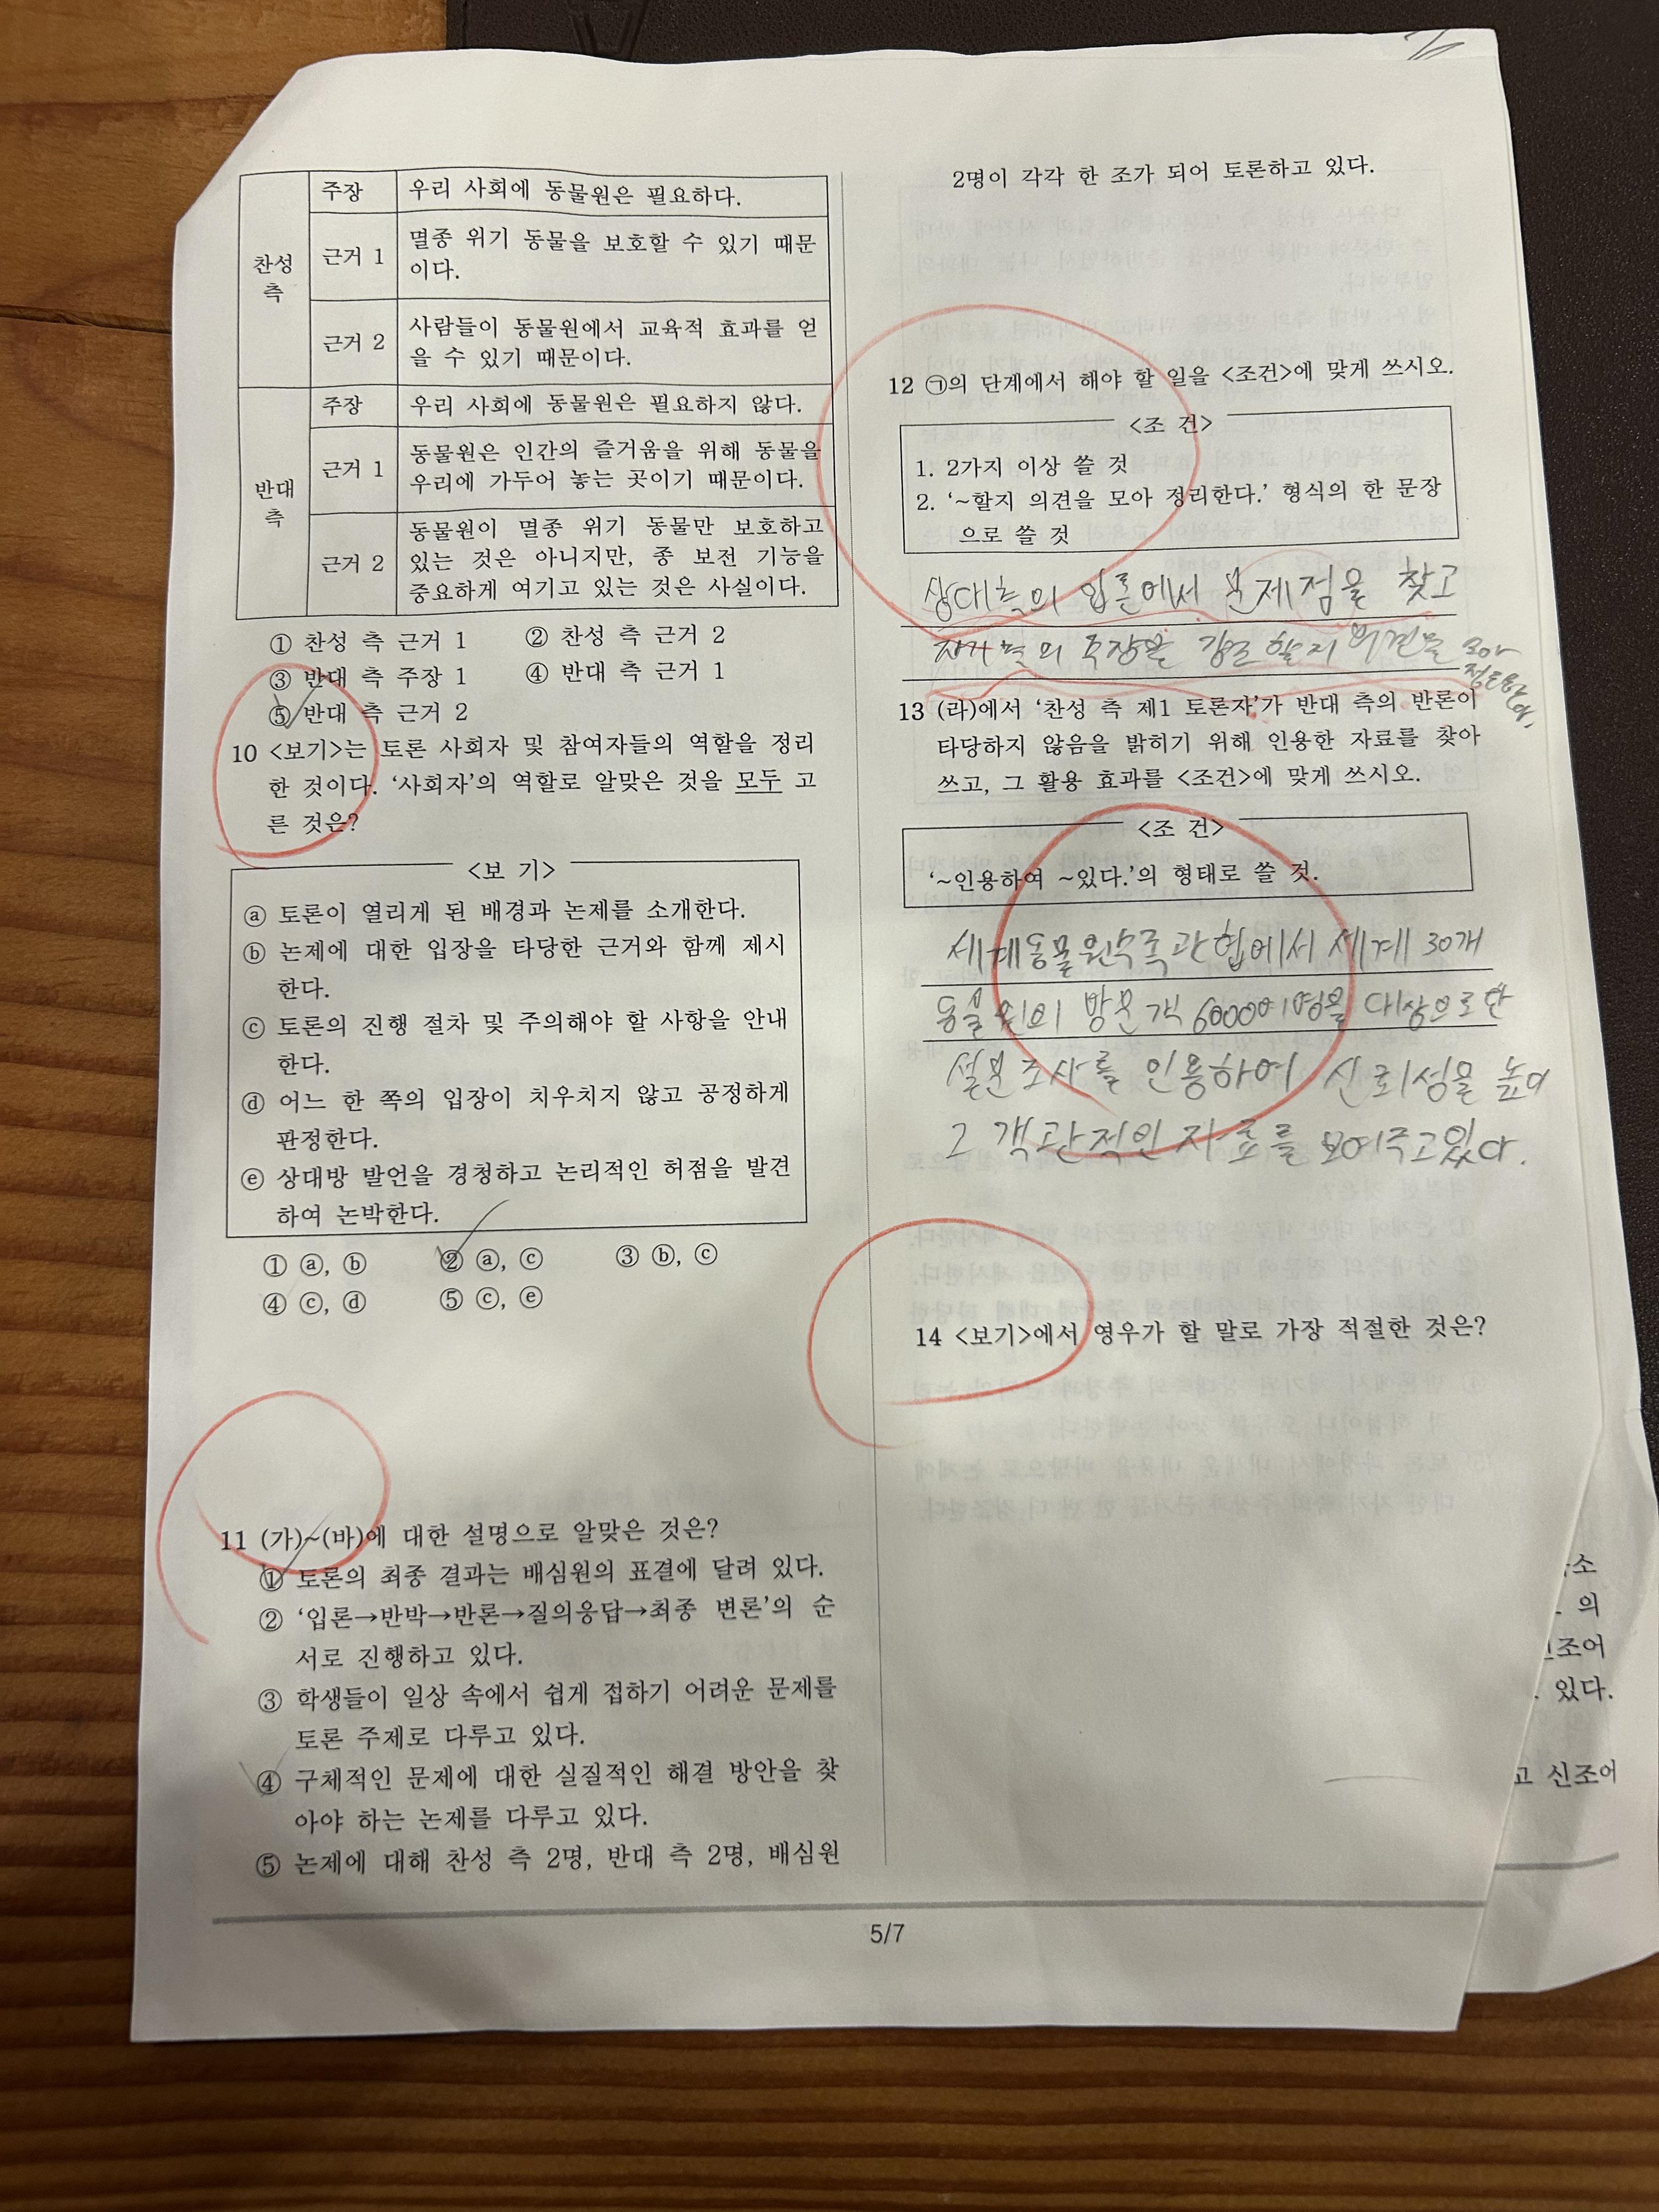 찬성
측
주장
우리 사회에 동물원은 필요하다.
근거 1
멸종 위기 동물을 보호할 수 있기 때문
이다.
근거 2
사람들이 동물원에서 교육적 효과를 얻
을 수 있기 때문이다.
반대
측
주장
우리 사회에 동물원은 필요하지 않다.
근거 1
동물원은 인간의 즐거움을 위해 동물을
우리에 가두어 놓는 곳이기 때문이다.
근거 2
동물원이 멸종 위기 동물만 보호하고
있는 것은 아니지만, 종 보전 기능을
중요하게 여기고 있는 것은 사실이다.
① 찬성 측 근거 1 ② 찬성 측 근거 2
③ 반대 측 주장 1 ④ 반대 측 근거 1
⑤ 반대 측 근거 2
10 <보기>는 토론 사회자 및 참여자들의 역할을 정리
한 것이다. ‘사회자’의 역할로 알맞은 것을 모두 고
른 것은?
<보 기>
ⓐ 토론이 열리게 된 배경과 논제를 소개한다.
ⓑ 논제에 대한 입장을 타당한 근거와 함께 제시
한다.
ⓒ 토론의 진행 절차 및 주의해야 할 사항을 안내
한다.
ⓓ 어느 한 쪽의 입장이 치우치지 않고 공정하게
판정한다.
ⓔ 상대방 발언을 경청하고 논리적인 허점을 발견
하여 논박한다.
① ⓐ, ⓑ ② ⓐ, ⓒ ③ ⓑ, ⓒ
④ ⓒ, ⓓ ⑤ ⓒ, ⓔ
11 (가)~(바)에 대한 설명으로 알맞은 것은?
① 토론의 최종 결과는 배심원의 표결에 달려 있다.
② ‘입론→반박→반론→질의응답→최종 변론’의 순
서로 진행하고 있다.
③ 학생들이 일상 속에서 쉽게 접하기 어려운 문제를
토론 주제로 다루고 있다.
④ 구체적인 문제에 대한 실질적인 해결 방안을 찾
아야 하는 논제를 다루고 있다.
⑤ 논제에 대해 찬성 측 2명, 반대 측 2명, 배심원
2명이 각각 한 조가 되어 토론하고 있다.
12 ㉠의 단계에서 해야 할 일을 <조건>에 맞게 쓰시오.
<조 건>
1. 2가지 이상 쓸 것
2. ‘~할지 의견을 모아 정리한다.’ 형식의 한 문장
으로 쓸 것
상대측의 입론에서 문제점을 찾고
자기 측의 주장을 강조할지 의견을 모아
정리한다.
13 (라)에서 ‘찬성 측 제1 토론자’가 반대 측의 반론이
타당하지 않음을 밝히기 위해 인용한 자료를 찾아
쓰고, 그 활용 효과를 <조건>에 맞게 쓰시오.
<조 건>
‘~인용하여 ~있다.’의 형태로 쓸 것.
세계동물원수족관협에서 세계 30개
동물원의 방문객 6000여명을 대상으로한
설문조사를 인용하여 신뢰성을 높이
고 객관적인 자료를 보여주고있다.
14 <보기>에서 영우가 할 말로 가장 적절한 것은?
의
신조어
있다.
고 신조어
5/7